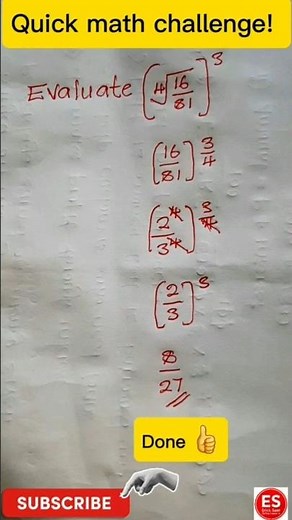 Quick math challenge!
Evaluate (∜16/81)^3
(16/81)^3/4
(2^4/3^4)^3/4
(2/3)^3
8/27
Done 👍
SUBSCRIBE
ES